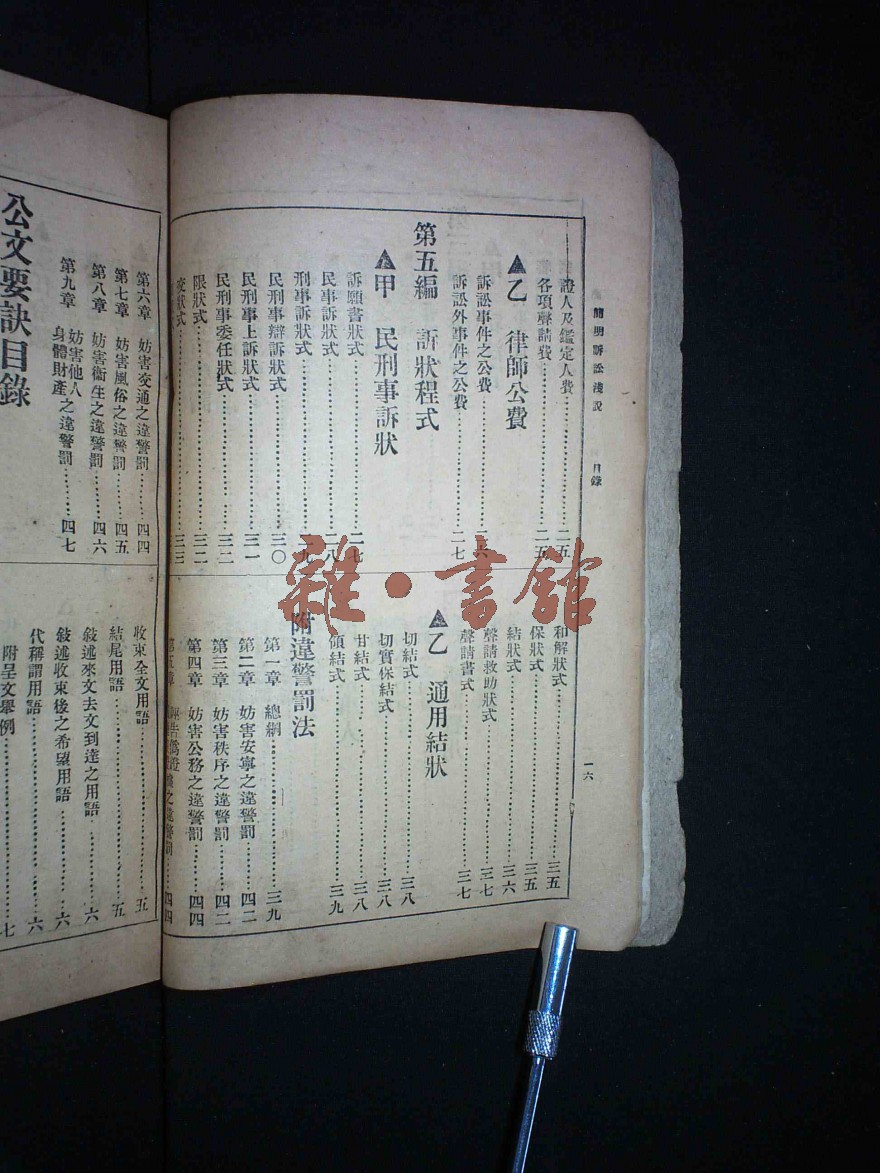 簡明訴訟淺說
目錄
一六
證人及鑑定人費……二五
各項聲請費……二五
▲乙 律師公費
訴訟事件之公費……二六
訴訟外事件之公費……二七
第五編 訴狀程式
▲甲 民刑事訴狀
訴願書狀式……二七
民事訴狀式……二八
刑事訴狀式……二九
民刑事辯訴狀式……三〇
民刑事上訴狀式……三一
民刑事委任狀式……三二
限狀式……三二
狀式……三三
和解狀式……三五
保狀式……三五
結狀式……三六
聲請救助狀式……三七
聲請書式……三七
▲乙 通用結狀
切結式……三八
切實保結式……三八
甘結式……三八
領結式……三九
附違警罰法
第一章 總綱……三九
第二章 妨害安寧之違警罰……四二
第三章 妨害秩序之違警罰……四二
第四章 妨害公務之違警罰……四四
第五章 誣告僞證之違警罰……四四
第六章 妨害交通之違警罰……四四
第七章 妨害風俗之違警罰……四五
第八章 妨害衞生之違警罰……四六
第九章 妨害他人身體財產之違警罰……四七
公文要訣目錄
收束全文用語……五
結尾用語……五
敍述來文去文到達之用語……六
敍述收束後之希望用語……六
代稱謂用語……六
附呈文舉例……七
雜·書館